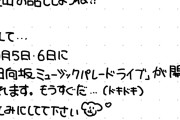 して…
月5日・6日に
日向坂ミュージックパレードライブ」が開
されます。もうすぐだ…(ドキドキ)
しみにしてて下さい